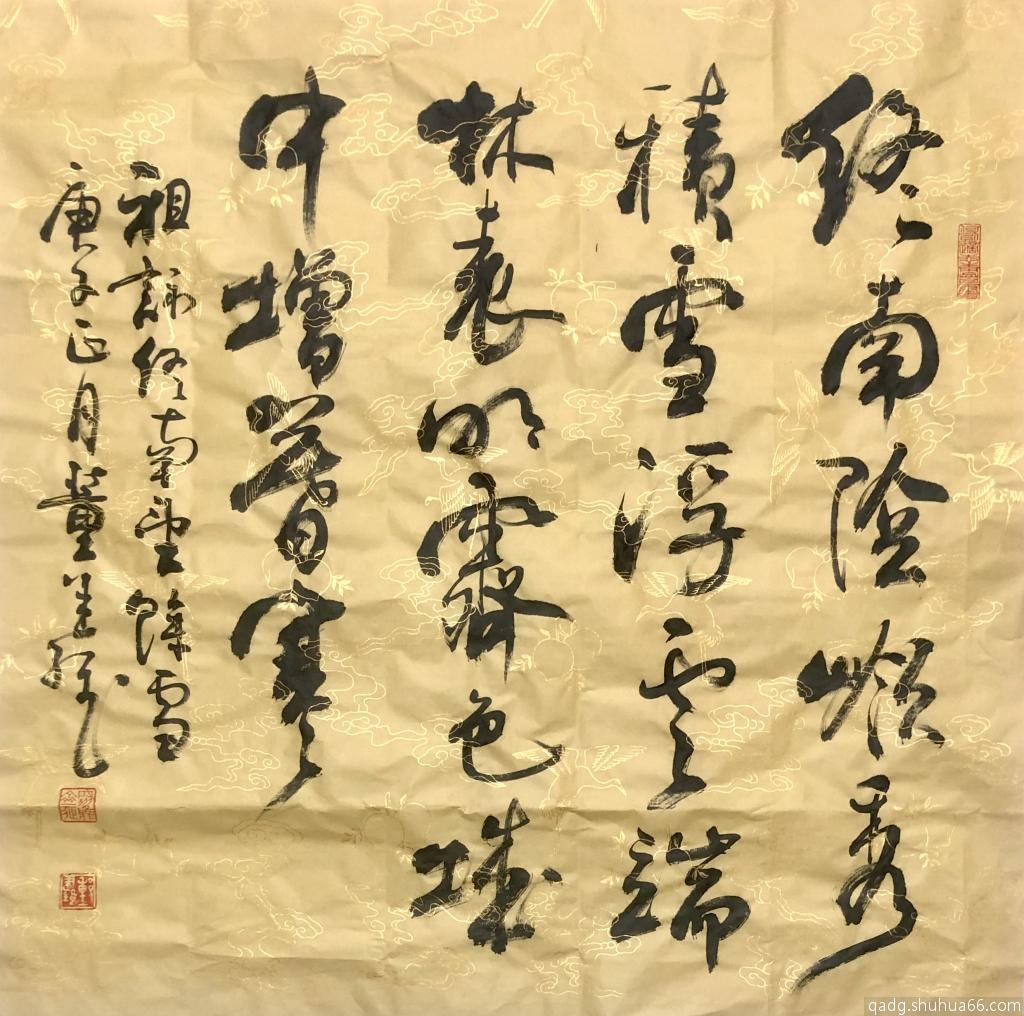 終南陰嶺秀
積雪浮云端
林表明霽色城
中增暮寒
祖詠終南望餘雪
庚子正月董
qadg.shuhua66.com